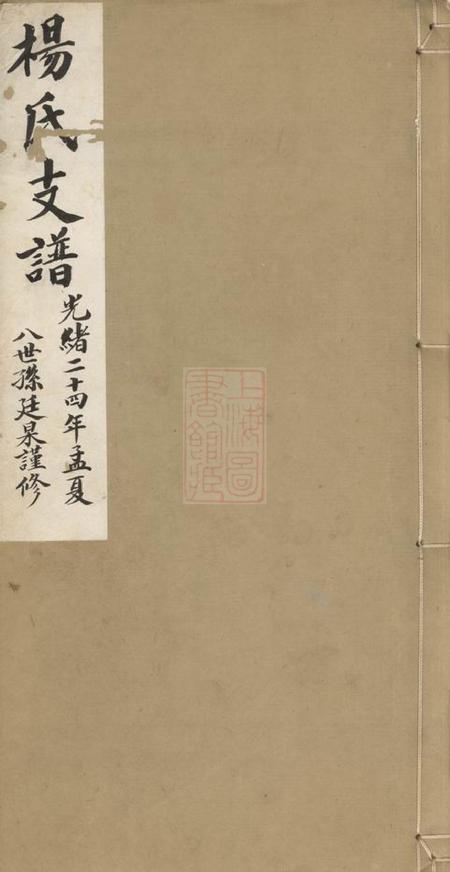 楊氏支譜
光緒二十四年孟夏
八世孫廷杲謹修
上海圖
書館藏